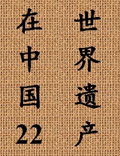 世界遗产
在中国22